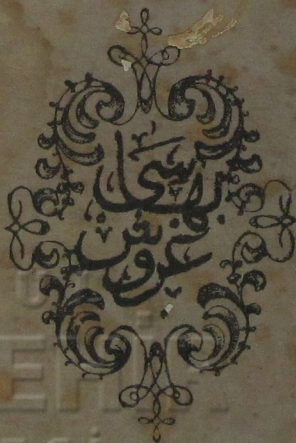 بهاسی
غروش